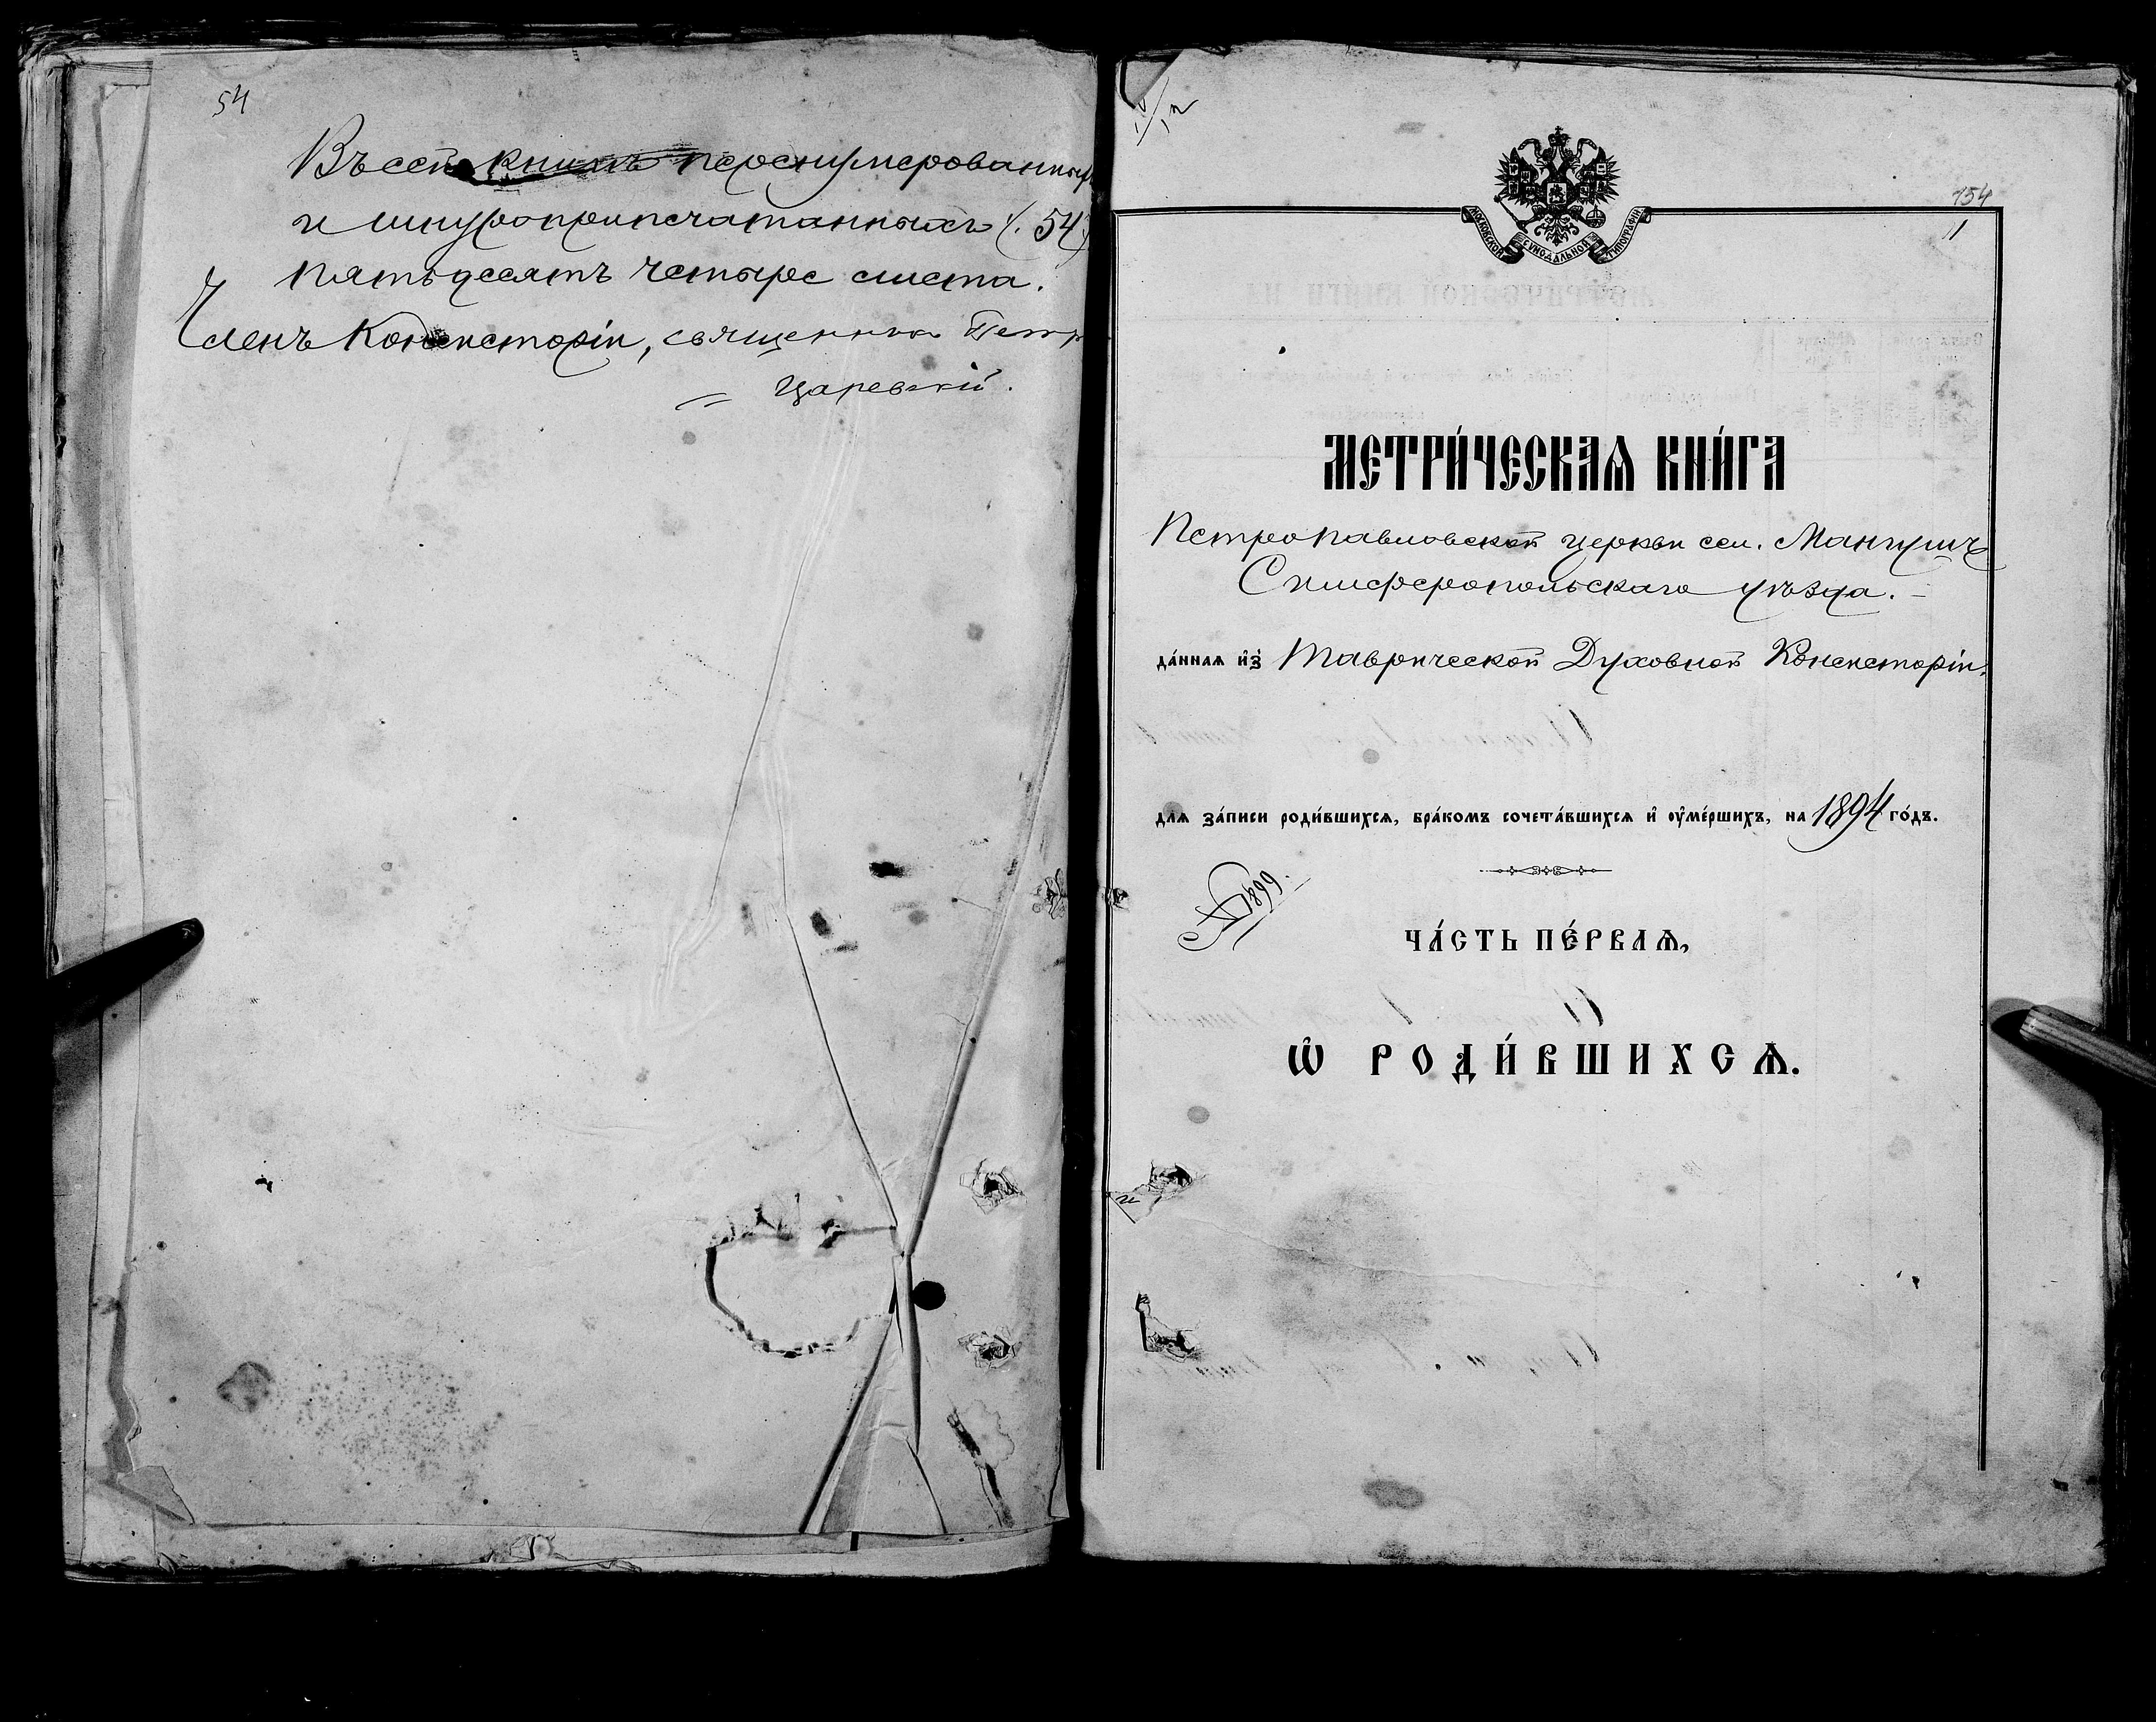 54
Въ сей книгѣ перенумерованныхъ
и шнуроприпечатанныхъ (54)
пятьдесятъ четыре листа.
Членъ Консисторіи, священникъ Петръ
Царевскій.
154
1
МОСКОВСКОЙ СѴНОДАЛЬНОЙ ТИПОГРАФІИ
МЕТРИ́ЧЕСКАѦ КНИ́ГА
Петропавловской церкви сел. Мангушъ
Симферопольскаго уѣзда.
да́ннаѧ и҆з̾ Таврической Духовной Консисторіи,
длѧ за́писи роди́вшихсѧ, бра́комъ сочета́вшихсѧ и҆ ѹ҆ме́ршихъ, на 1894 го́дъ.
1899.
ЧА́СТЬ ПЕ́РВАѦ,
Ѡ҆ РОДИ́ВШИХСѦ.